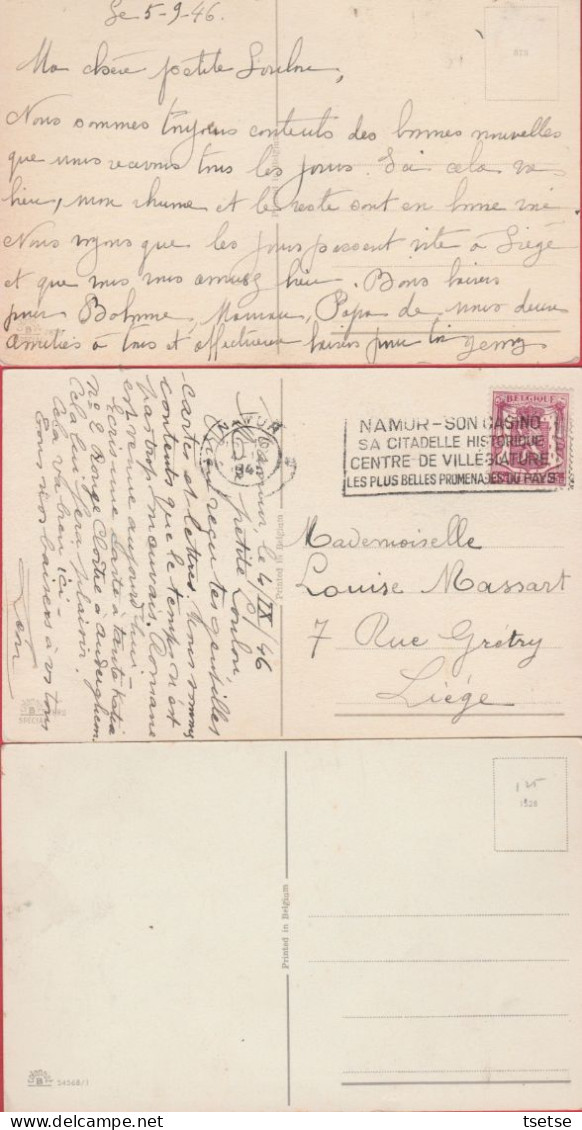 Le 5-9-46.
Ma chère petite Loulou,
Nous sommes toujours contents des bonnes nouvelles
que nous recevons tous les jours. Ici cela va
bien, mon rhume et le reste sont en bonne voie.
Nous voyons que les jours passent vite à Liège
et que vous vous amusez bien. Bons baisers
pour Bobonne, Maman, Papa de nous deux
amitiés à tous et affectueux baisers pour toi
Printed in Belgium
Namur le 4/IX/46
petite Loulou,
reçu tes gentilles
cartes et lettres. Nous sommes
contents que le temps n'est
pas trop mauvais. Romane
est venue aujourd'hui.
Ecris une carte à tante Katia
No 2 Rouge Cloître à Auderghem.
Cela lui fera plaisir.
Cela va bien ici -
Bons baisers à vous tous
BELGIQUE
NAMUR - SON CASINO
SA CITADELLE HISTORIQUE
CENTRE DE VILLÉGIATURE
LES PLUS BELLES PROMENADES DU PAYS
Printed in Belgium
Mademoiselle
Louise Massart
7 Rue Grétry
Liège
125
1528
Printed in Belgium
B
54568/1
https://www.delcampe.net
tsetse